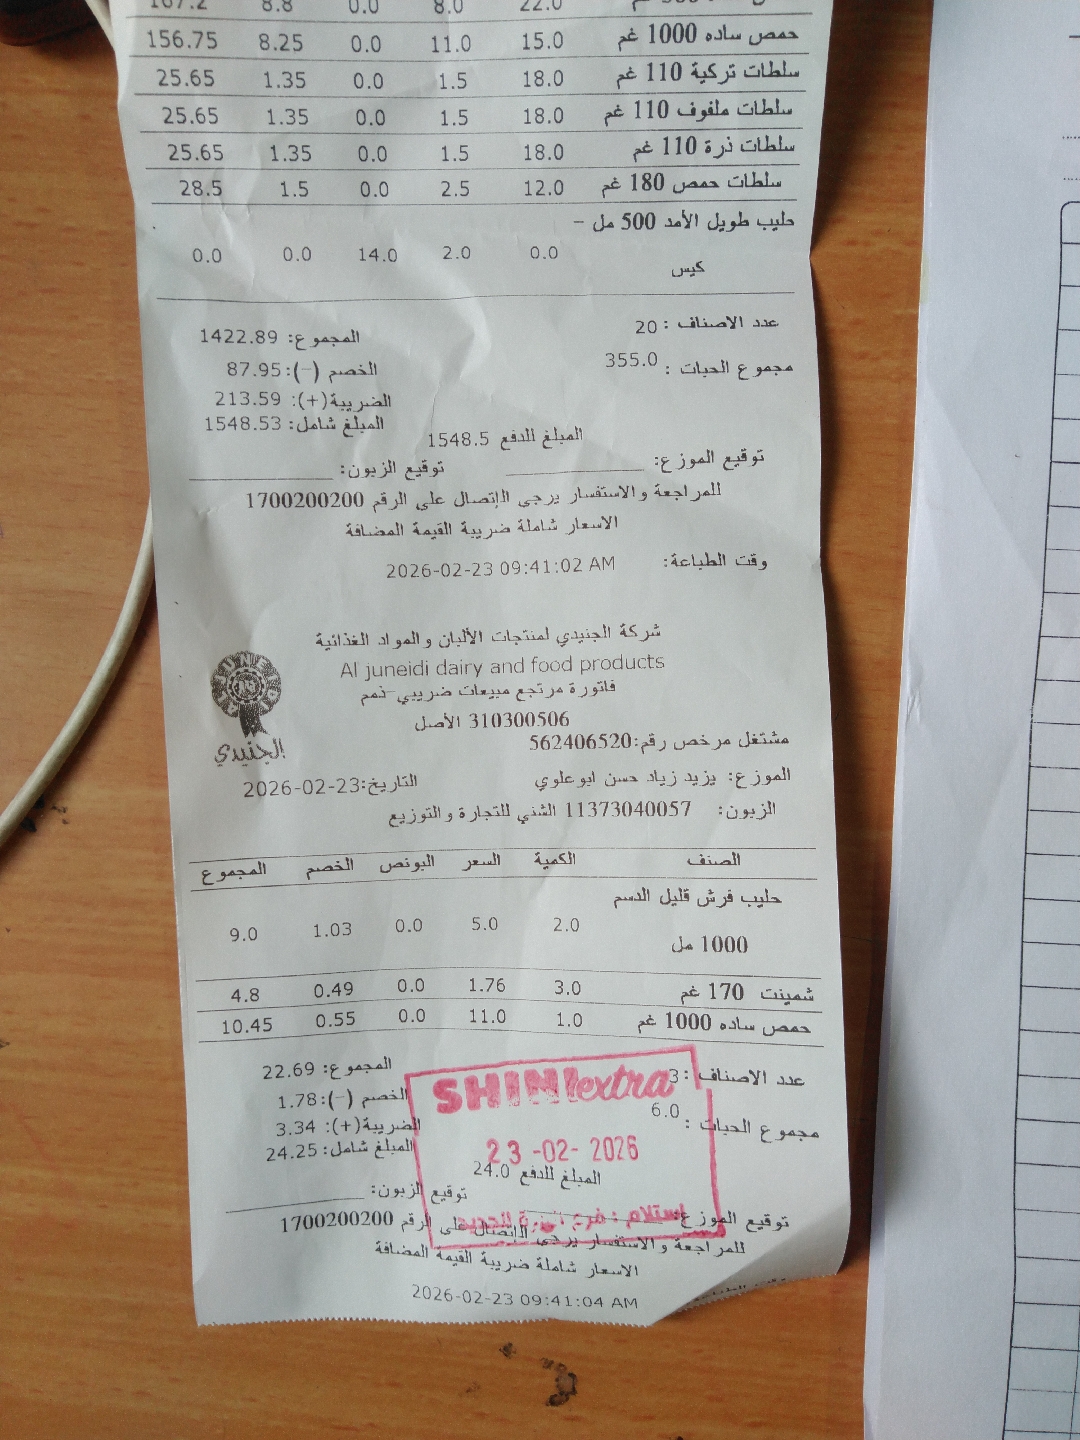 22.0 8.0 0.0 8.8 167.2
حمص ساده 1000 غم 15.0 11.0 0.0 8.25 156.75
سلطات تركية 110 غم 18.0 1.5 0.0 1.35 25.65
سلطات ملفوف 110 غم 18.0 1.5 0.0 1.35 25.65
سلطات ذرة 110 غم 18.0 1.5 0.0 1.35 25.65
سلطات حمص 180 غم 12.0 2.5 0.0 1.5 28.5
حليب طويل الأمد 500 مل -
كيس 0.0 2.0 14.0 0.0 0.0
عدد الاصناف : 20 المجموع: 1422.89
مجموع الحبات : 355.0 الخصم (-): 87.95
الضريبة(+): 213.59
المبلغ شامل: 1548.53
المبلغ للدفع 1548.5
توقيع الموزع: توقيع الزبون:
للمراجعة والاستفسار يرجى الإتصال على الرقم 1700200200
الاسعار شاملة ضريبة القيمة المضافة
وقت الطباعة: 2026-02-23 09:41:02 AM
شركة الجنيدي لمنتجات الألبان والمواد الغذائية
Al juneidi dairy and food products
فاتورة مرتجع مبيعات ضريبي-ذمم
310300506 الأصل
الجنيدي
مشتغل مرخص رقم:562406520
الموزع: يزيد زياد حسن ابوعلوي التاريخ:2026-02-23
الزبون: 11373040057 الشني للتجارة والتوزيع
الصنف الكمية السعر البونص الخصم المجموع
حليب فرش قليل الدسم
1000 مل 2.0 5.0 0.0 1.03 9.0
شمينت 170 غم 3.0 1.76 0.0 0.49 4.8
حمص ساده 1000 غم 1.0 11.0 0.0 0.55 10.45
عدد الاصناف : 3 المجموع: 22.69
SHINI extra
مجموع الحبات : 6.0 الخصم (-): 1.78
الضريبة(+): 3.34
23-02-2026
المبلغ شامل: 24.25
المبلغ للدفع 24.0
توقيع الموزع: توقيع الزبون:
استلام : فرع
للمراجعة والاستفسار يرجى الإتصال على الرقم 1700200200
الاسعار شاملة ضريبة القيمة المضافة
2026-02-23 09:41:04 AM